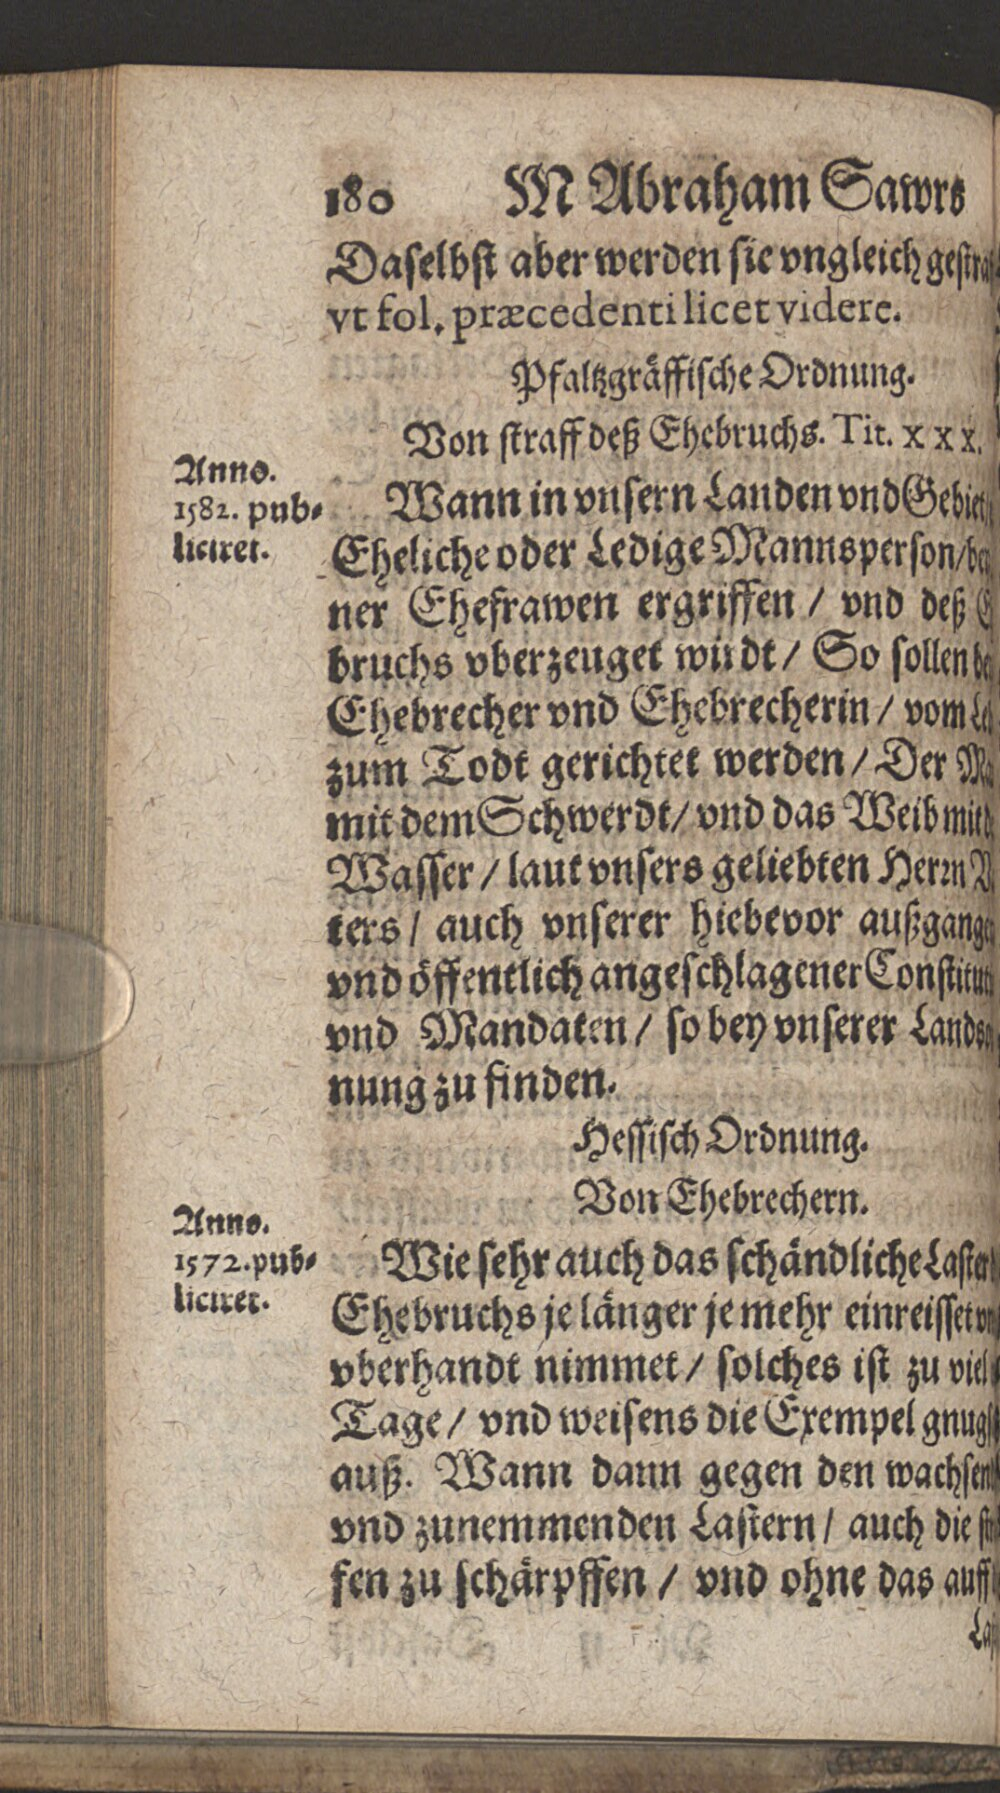 180 M Abraham Sawrs
Daselbst aber werden sie vngleich
vt fol. præcedenti licet videre.
Pfaltzgräffische Ordnung.
Von straff deß Ehebruchs. Tit. xxx.
Anno.
1582. pub-
liciret.
Wann in vnsern Landen vnd
Eheliche oder Ledige Mannsperson/
ner Ehefrawen ergriffen / vnd deß
bruchs vberzeuget wirdt / So sollen
Ehebrecher vnd Ehebrecherin / vom
zum Todt gerichtet werden / Der
mit dem Schwerdt / vnd das Weib mit
Wasser / laut vnsers geliebten Herrn
ters / auch vnserer hiebevor
vnd öffentlich angeschlagener
vnd Mandaten / so bey vnserer
nung zu finden.
Hessisch Ordnung.
Von Ehebrechern.
Anno.
1572. pub-
liciret.
Wie sehr auch das schändliche Laster
Ehebruchs je länger je mehr einreisset
vberhandt nimmet / solches ist zu viel
Tage / vnd weisens die Exempel
auß. Wann dann gegen den
vnd zunemmenden Lastern / auch die
fen zu schärpffen / vnd ohne das auff